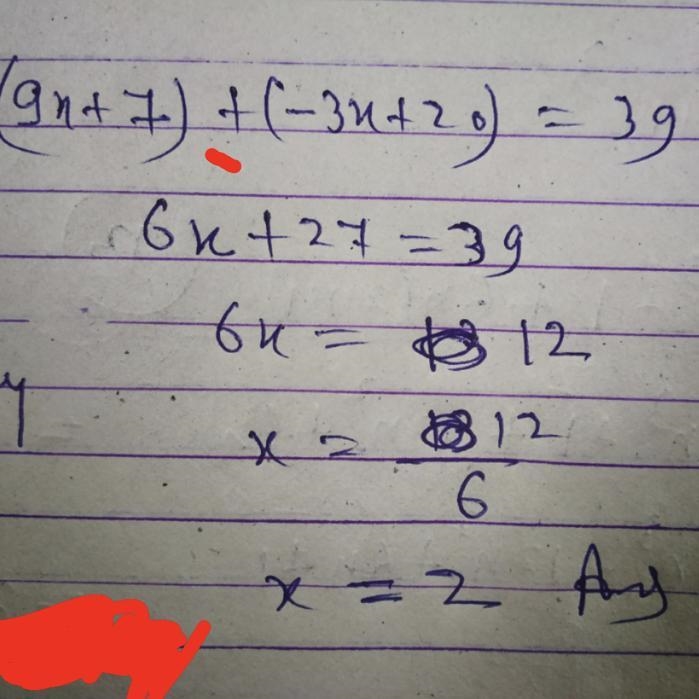 (9x+7)+(-3x+20) = 39
6x+27=39
6x = 12
y
x = 12/6
x = 2 Ans